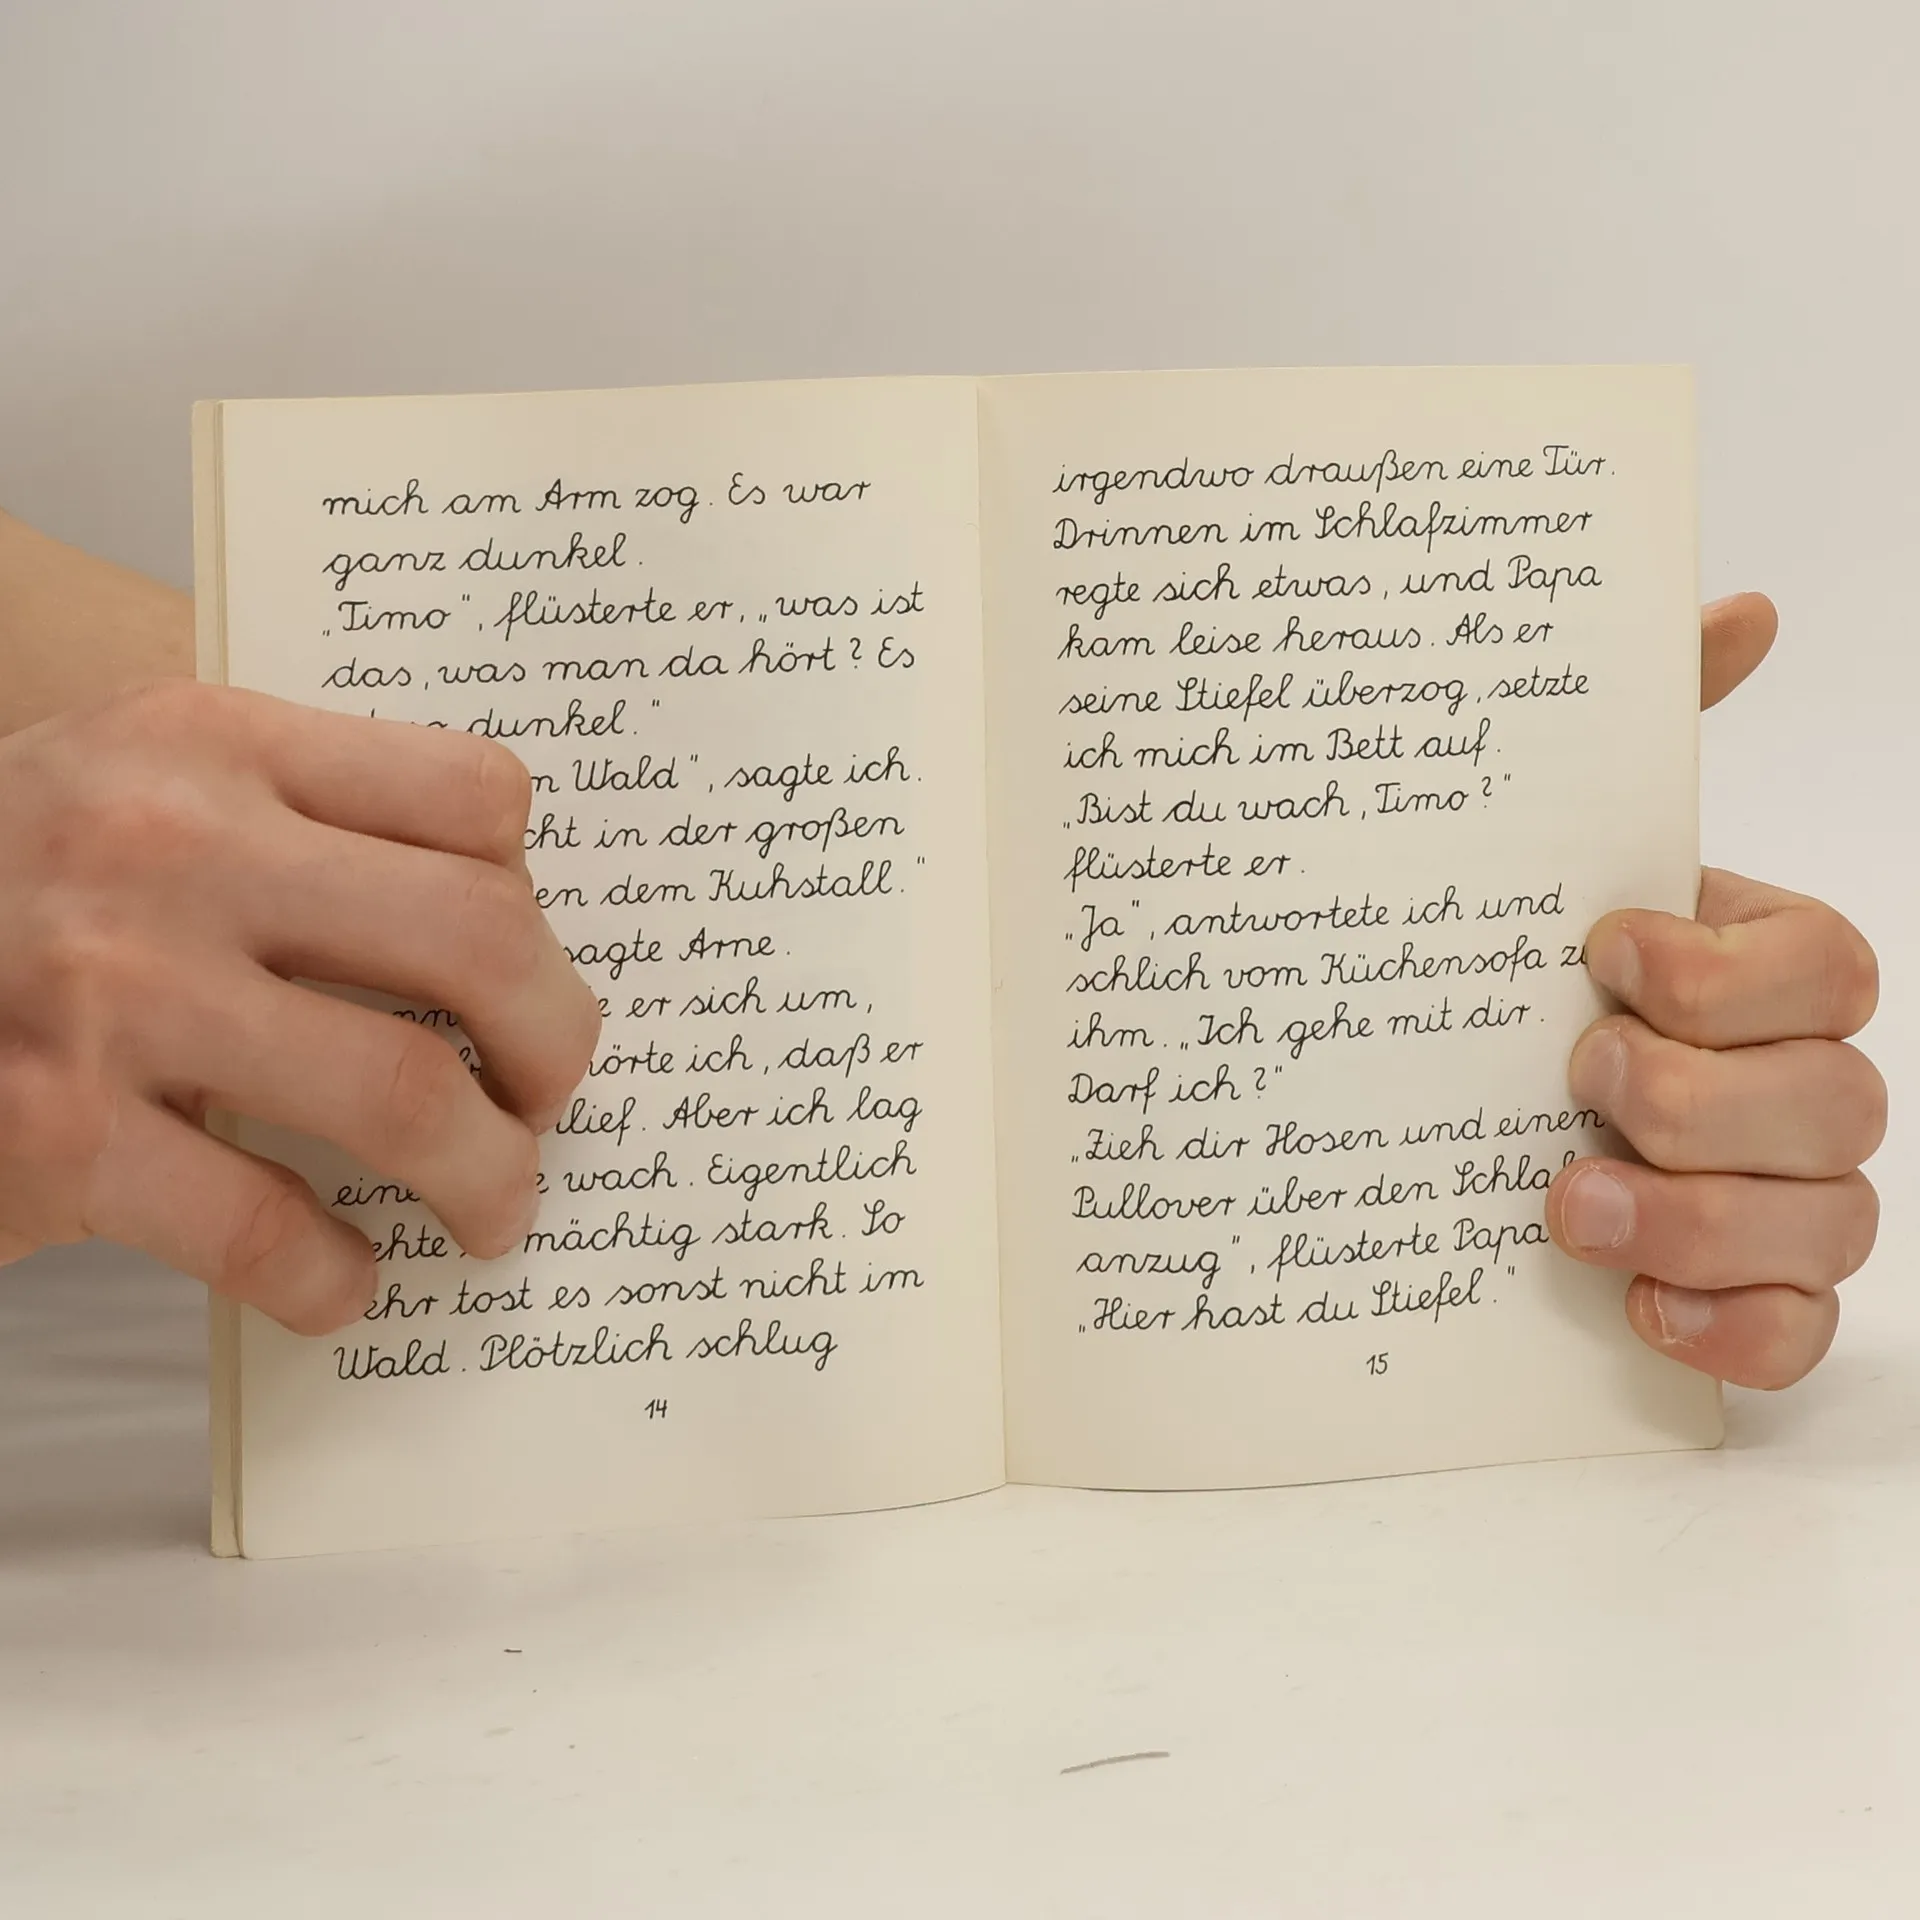 mich am Arm zog. Es war
ganz dunkel.
„Timo", flüsterte er, „was ist
das, was man da hört? Es
dunkel."
Wald", sagte ich.
in der großen
dem Kuhstall."
sagte Arne.
er sich um,
hörte ich, daß er
Aber ich lag
wach. Eigentlich
mächtig stark. So
tost es sonst nicht im
Wald. Plötzlich schlug
14
irgendwo draußen eine Tür.
Drinnen im Schlafzimmer
regte sich etwas, und Papa
kam leise heraus. Als er
seine Stiefel überzog, setzte
ich mich im Bett auf.
„Bist du wach, Timo?"
flüsterte er.
„Ja", antwortete ich und
schlich vom Küchensofa zu
ihm. „Ich gehe mit dir.
Darf ich?"
„Zieh dir Hosen und einen
Pullover über den Schlaf
anzug", flüsterte Papa
„Hier hast du Stiefel."
15